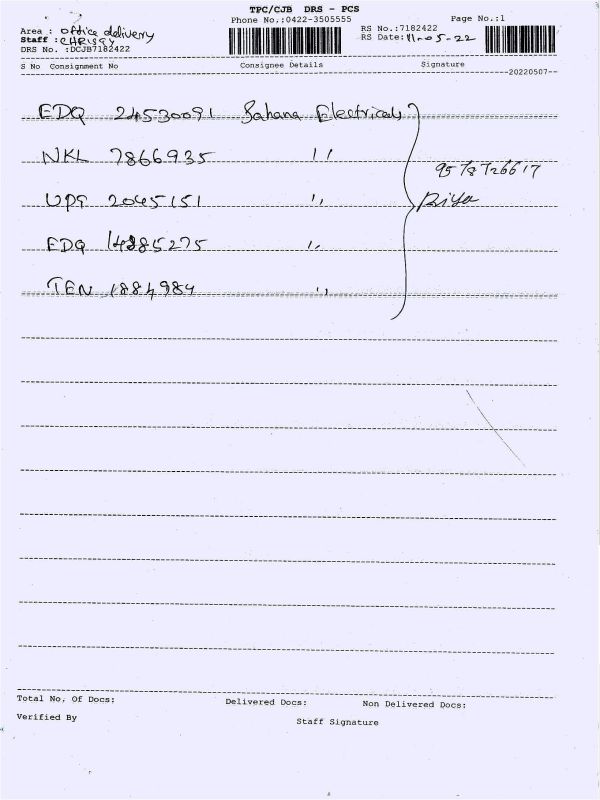 TPC/CJB DRS - PCS
Phone No.:0422-3505555 Page No.:1
Area : office delivery RS No.:7182422
Staff : CHRISSY RS Date: 11-05-22
DRS No. :DCJB7182422
S No Consignment No Consignee Details Signature
20220507
EDQ 24530091 Sahana Electricals
NKL 7866935 ''
9578726617
UPT 2045151 ''
EDQ 14285275 ''
TEN 1884984 ''
Total No. Of Docs: Delivered Docs: Non Delivered Docs:
Verified By Staff Signature